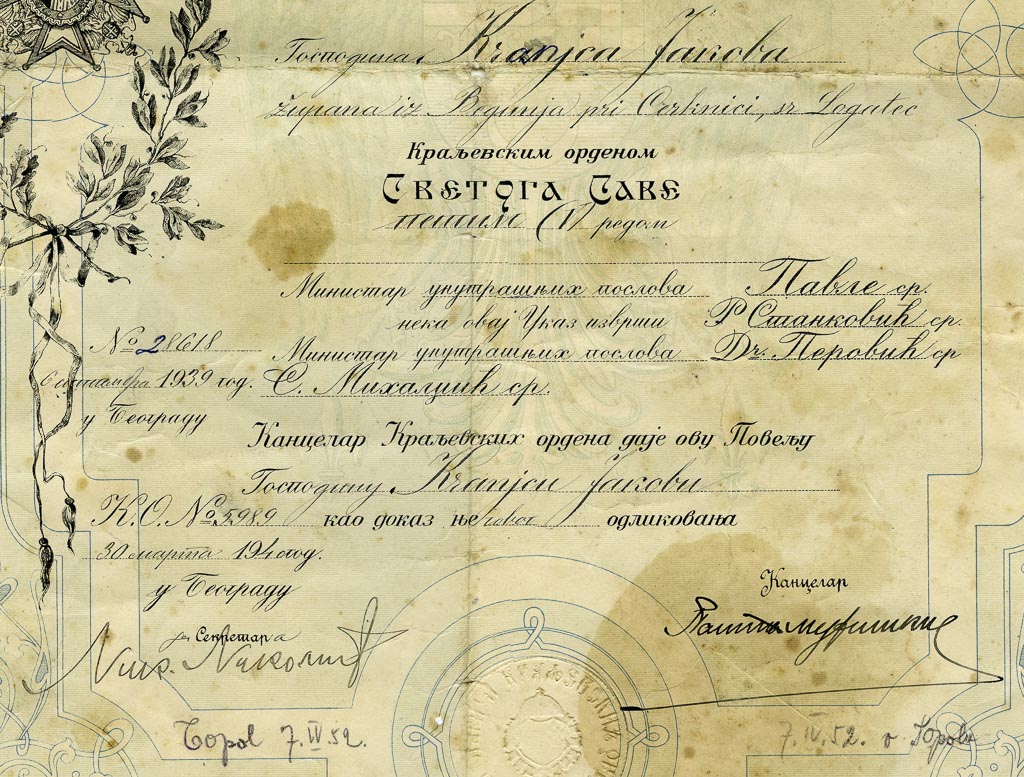 Господина Kranjca Jakova
župana iz Begunja pri Cerknici, sr Logatec
Краљевским орденом
СВЕТОГА САВЕ
петим (V) редом
Министар унутрашњих послова Павле ср.
нека овај Указ изврши Р Станковић ср.
№ 28618 Министар унутрашњих послова Dr. Перовић ср
6 септембра 1939 год. С. Михалџић ср.
у Београду
Канцелар Краљевских ордена даје ову Повељу
Господину Kranjcu Jakovu
К.О. № 5989 као доказ његовог одликовања
30 марта 1940 год.
у Београду
Канцелар
Секретара
7.IV.52.
7.IV.52.
КРАЉЕВСКИХ